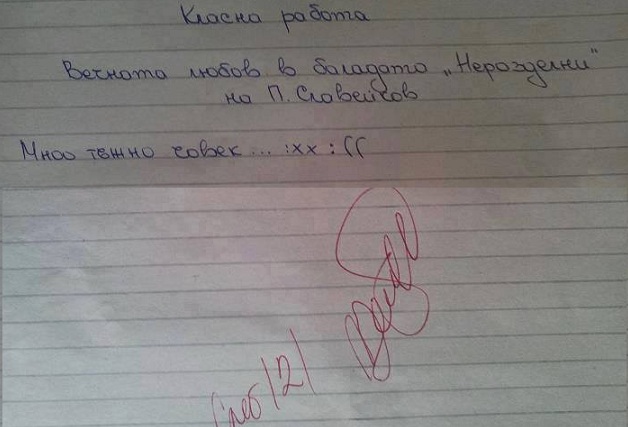 Класна работа
Вечната любов в баладата „Неразделни“
на П. Славейков
Мноо тежно човек ... :xx :((
Слаб /2/